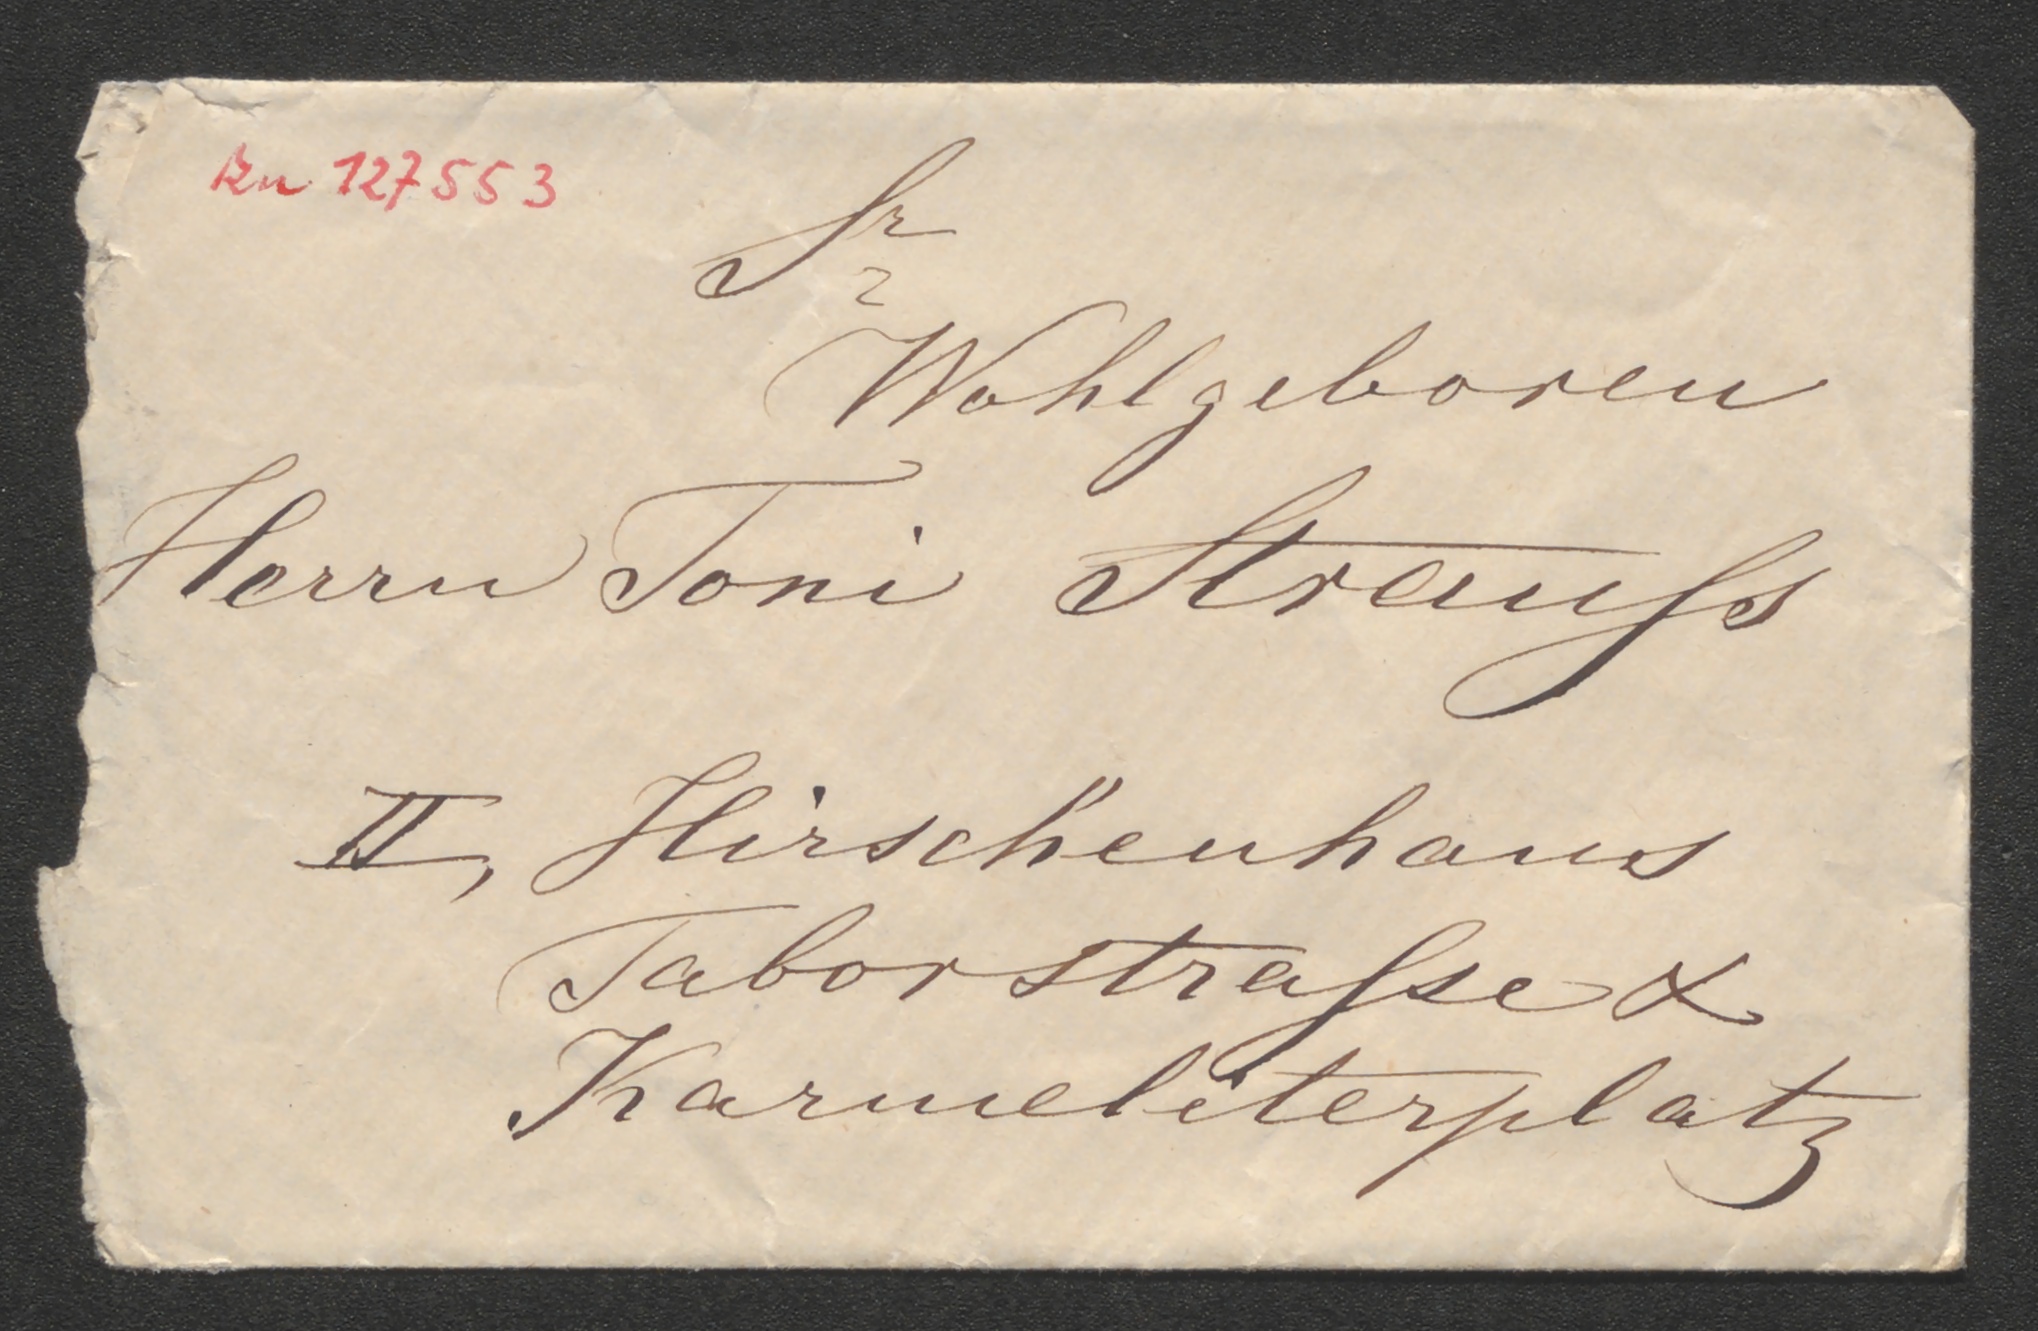 kn 127553
Sr
Wohlgeboren
Herrn Toni Strauss
II, Hirschenhaus
Taborstrasse &
Karmeliterplatz